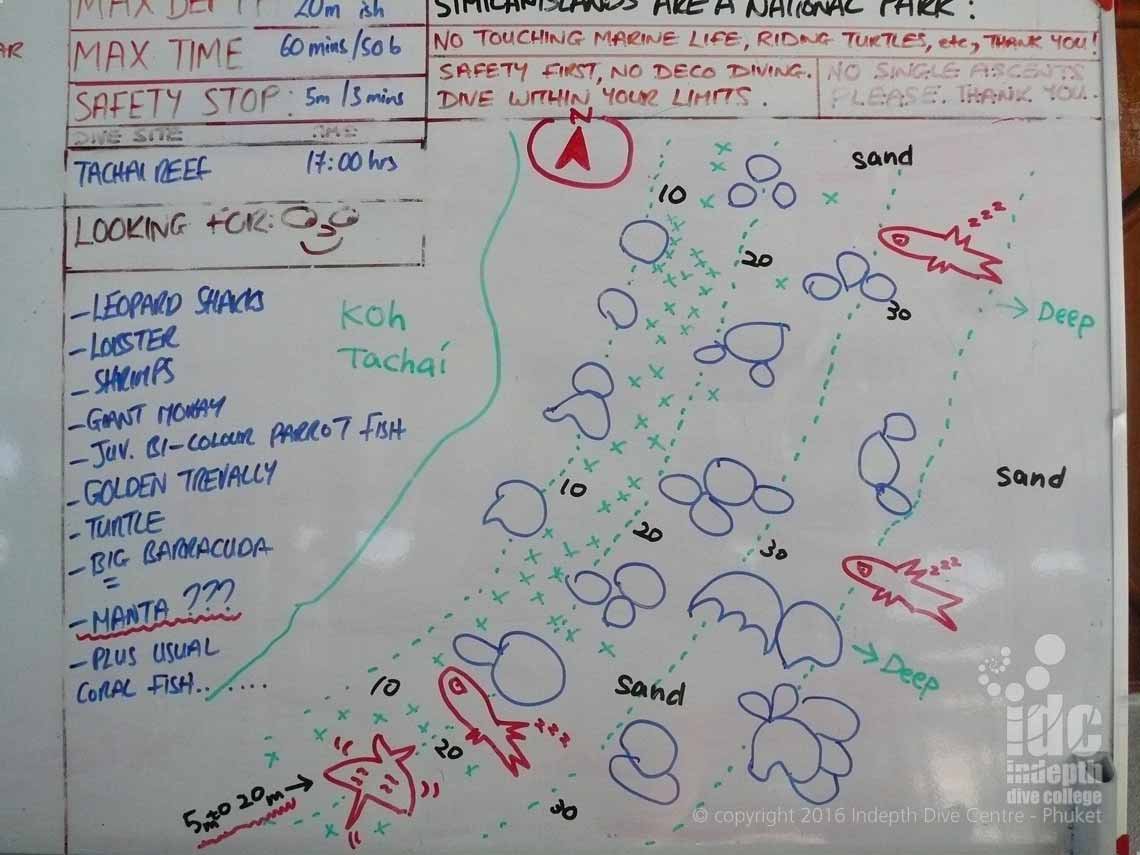 MAX DEPTH 20m ish
MAX TIME 60 mins/50 b
SAFETY STOP: 5m/3mins
DIVE SITE TIME
TACHAI REEF 17:00 hrs
LOOKING FOR:
- LEOPARD SHARKS
- LOBSTER
- SHRIMPS
- GIANT MORAY
- JUV. BI-COLOUR PARROT FISH
- GOLDEN TREVALLY
- TURTLE
- BIG BARRACUDA
- MANTA ???
- PLUS USUAL
CORAL FISH.......
SIMILAN ISLANDS ARE A NATIONAL PARK:
NO TOUCHING MARINE LIFE, RIDING TURTLES, etc, THANK YOU!
SAFETY FIRST, NO DECO DIVING.
DIVE WITHIN YOUR LIMITS.
NO SINGLE ASCENTS
PLEASE. THANK YOU..
N
sand
10
zzz
20
30
Deep
Koh
Tachai
sand
10
20
30
zzz
Deep
sand
10
zzz
20
5m to 20m
30
idc
indepth
dive college
© copyright 2016 Indepth Dive Centre - Phuket